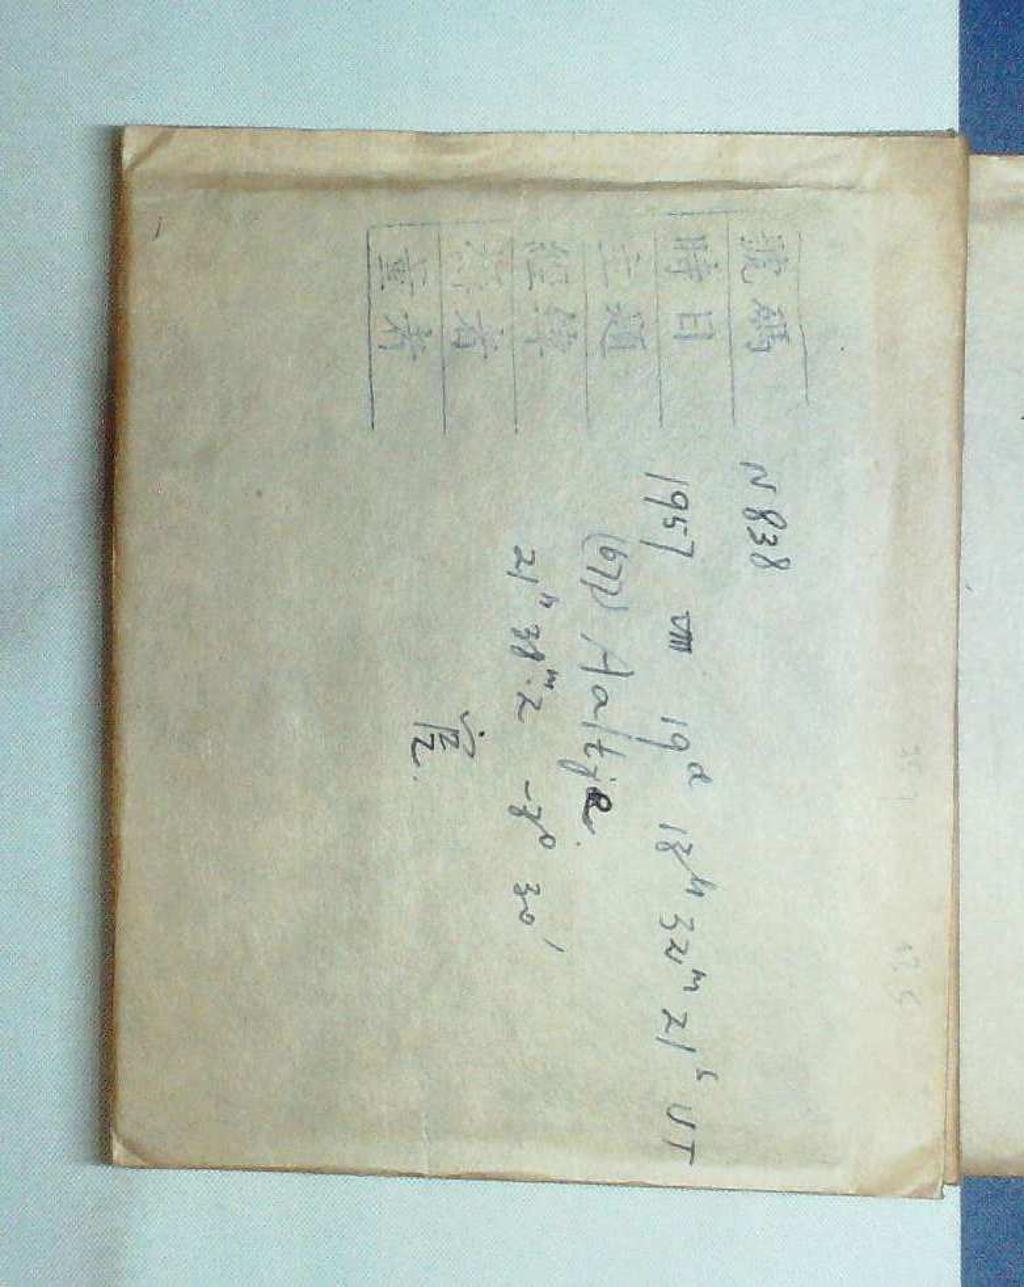 號碼 N 838
時日 1957 VIII 19ᵈ 18ʰ 32ᵐ 21ˢ UT
主題 (677) Aaltje
經緯 21ʰ 38ᵐ.2 -8° 30'
者
量者